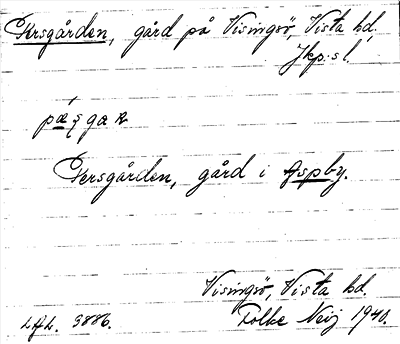 Persgården, gård på Visingsö, Vista hd,
Jkp. sl.
pæʂgaʀ
Persgården, gård i Aspby.
Visingsö, Vista hd.
Lfl. 3886. Folke Neij 1940.